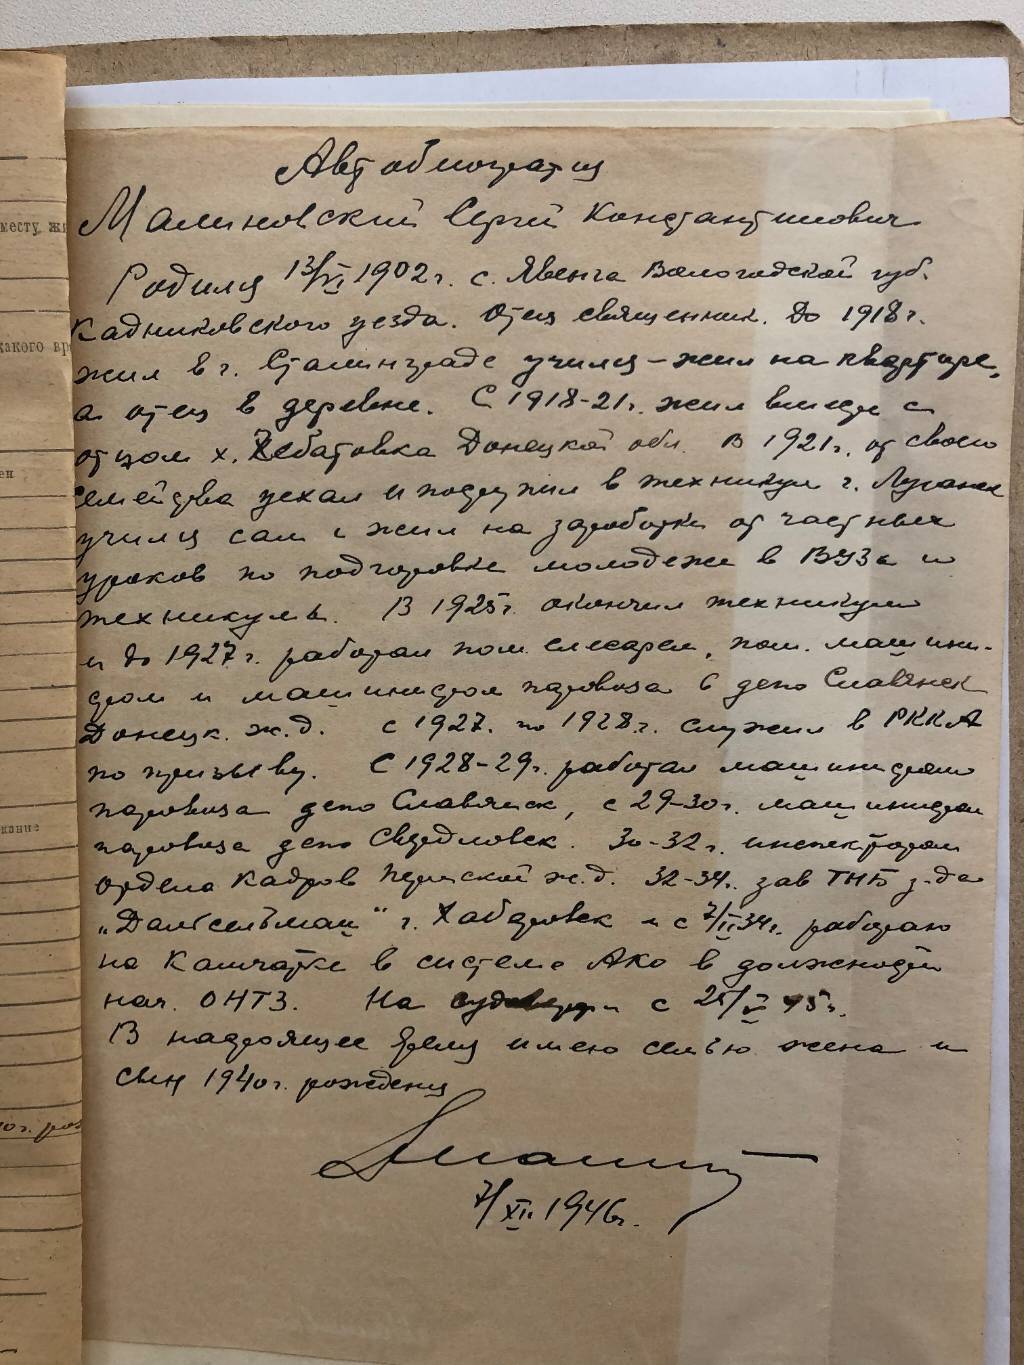 Автобиография
Малиновский Сергей Константинович
Родился 13/VI 1902 г. с. Явенга Вологодской губ.
Кадниковского уезда. Отец священник. До 1918 г.
жил в г. Сталинграде учился – жил на квартире,
а отец в деревне. С 1918-21 г. жил вместе с
отцом х. Чебатовка Донецкой обл. В 1921 г. от своего
семейства уехал и поступил в техникум г. Луганск
учился сам и жил на заработки от частных
уроков по подготовке молодежи в ВУЗы и
техникумы. В 1925 г. окончил техникум
и до 1927 г. работал пом. слесарем, пом. машини-
стом и машинистом паровоза в депо Славянск
Донецк. ж.д. с 1927. по 1928 г. служил в РККА
по призыву. С 1928-29 г. работал машинистом
паровоза депо Славянск, с 29-30 г. машинистом
паровоза депо Свердловск. 30-32 г. инспектором
отдела кадров Пермской ж.д. 32-34 г. зав ТНБ з-да
„Дальсельмаш" г. Хабаровск и с 7/II 34 г. работаю
на Камчатке в системе АКО в должности
нач. ОНТЗ. На с 25/V 45 г.
В настоящее время имею семью жена и
сын 1940 г. рождения
7/XII 1946 г.
месту жи
какого вр
ен
кание